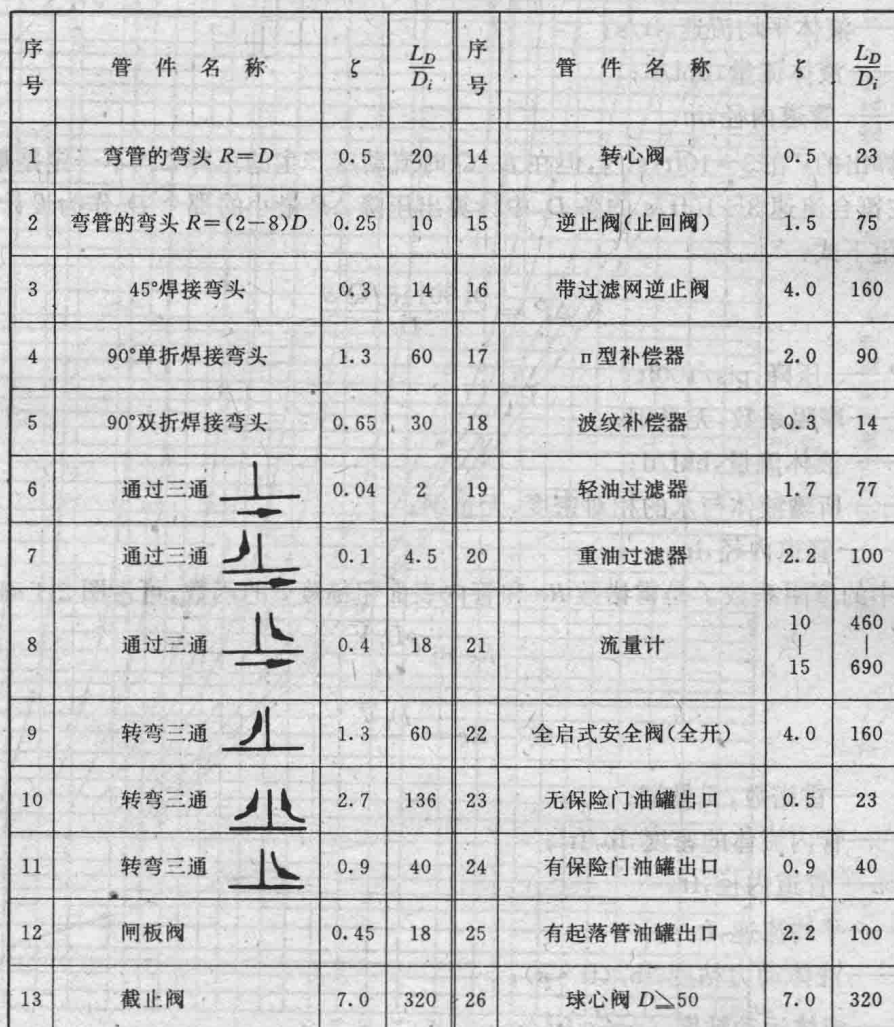 序号 管件名称 ζ L_D/D_i 序号 管件名称 ζ L_D/D_i
1 弯管的弯头 R=D 0.5 20 14 转心阀 0.5 23
2 弯管的弯头 R=(2-8)D 0.25 10 15 逆止阀(止回阀) 1.5 75
3 45°焊接弯头 0.3 14 16 带过滤网逆止阀 4.0 160
4 90°单折焊接弯头 1.3 60 17 π型补偿器 2.0 90
5 90°双折焊接弯头 0.65 30 18 波纹补偿器 0.3 14
6 通过三通 0.04 2 19 轻油过滤器 1.7 77
7 通过三通 0.1 4.5 20 重油过滤器 2.2 100
8 通过三通 0.4 18 21 流量计 10|15 460|690
9 转弯三通 1.3 60 22 全启式安全阀(全开) 4.0 160
10 转弯三通 2.7 136 23 无保险门油罐出口 0.5 23
11 转弯三通 0.9 40 24 有保险门油罐出口 0.9 40
12 闸板阀 0.45 18 25 有起落管油罐出口 2.2 100
13 截止阀 7.0 320 26 球心阀 D⩾50 7.0 320